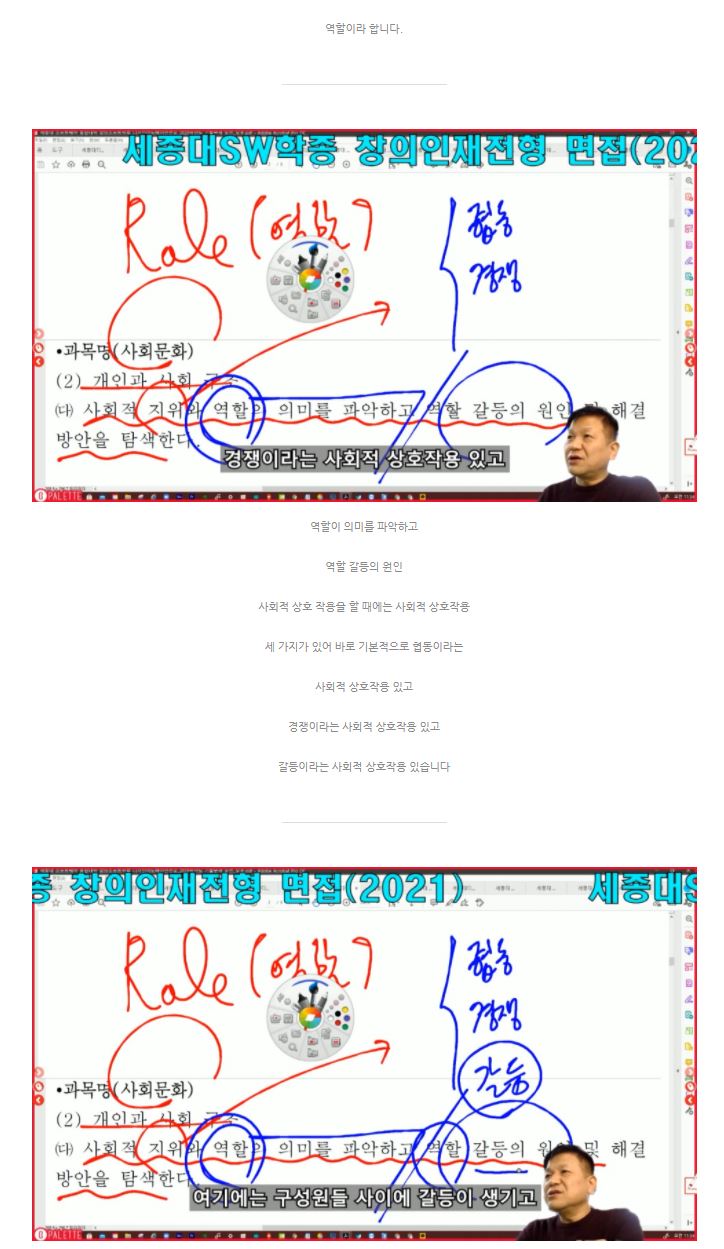 역할이라 합니다.
세종대SW학종 창의인재전형 면접(202
Role (역할)
협동
경쟁
•과목명(사회문화)
(2) 개인과 사회 구조
㈐ 사회적 지위와 역할의 의미를 파악하고 역할 갈등의 원인 및 해결
방안을 탐색한다.
경쟁이라는 사회적 상호작용 있고
PALETTE
역할이 의미를 파악하고
역할 갈등의 원인
사회적 상호 작용을 할 때에는 사회적 상호작용
세 가지가 있어 바로 기본적으로 협동이라는
사회적 상호작용 있고
경쟁이라는 사회적 상호작용 있고
갈등이라는 사회적 상호작용 있습니다
종 창의인재전형 면접(2021) 세종대S
Role (역할)
협동
경쟁
갈등
•과목명(사회문화)
(2) 개인과 사회 구조
㈐ 사회적 지위와 역할의 의미를 파악하고 역할 갈등의 원인 및 해결
방안을 탐색한다.
여기에는 구성원들 사이에 갈등이 생기고
PALETTE